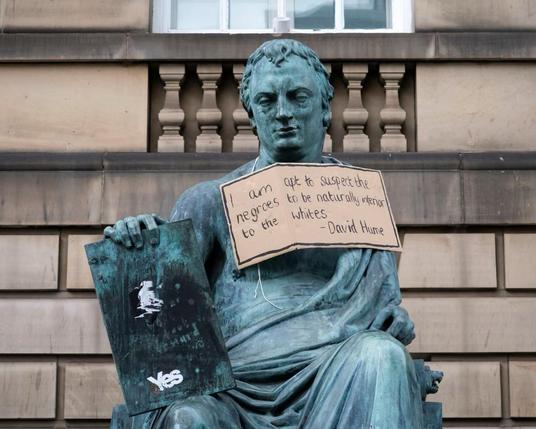 I am apt to suspect the
negroes to be naturally inferior
to the whites
-David Hume
Yes